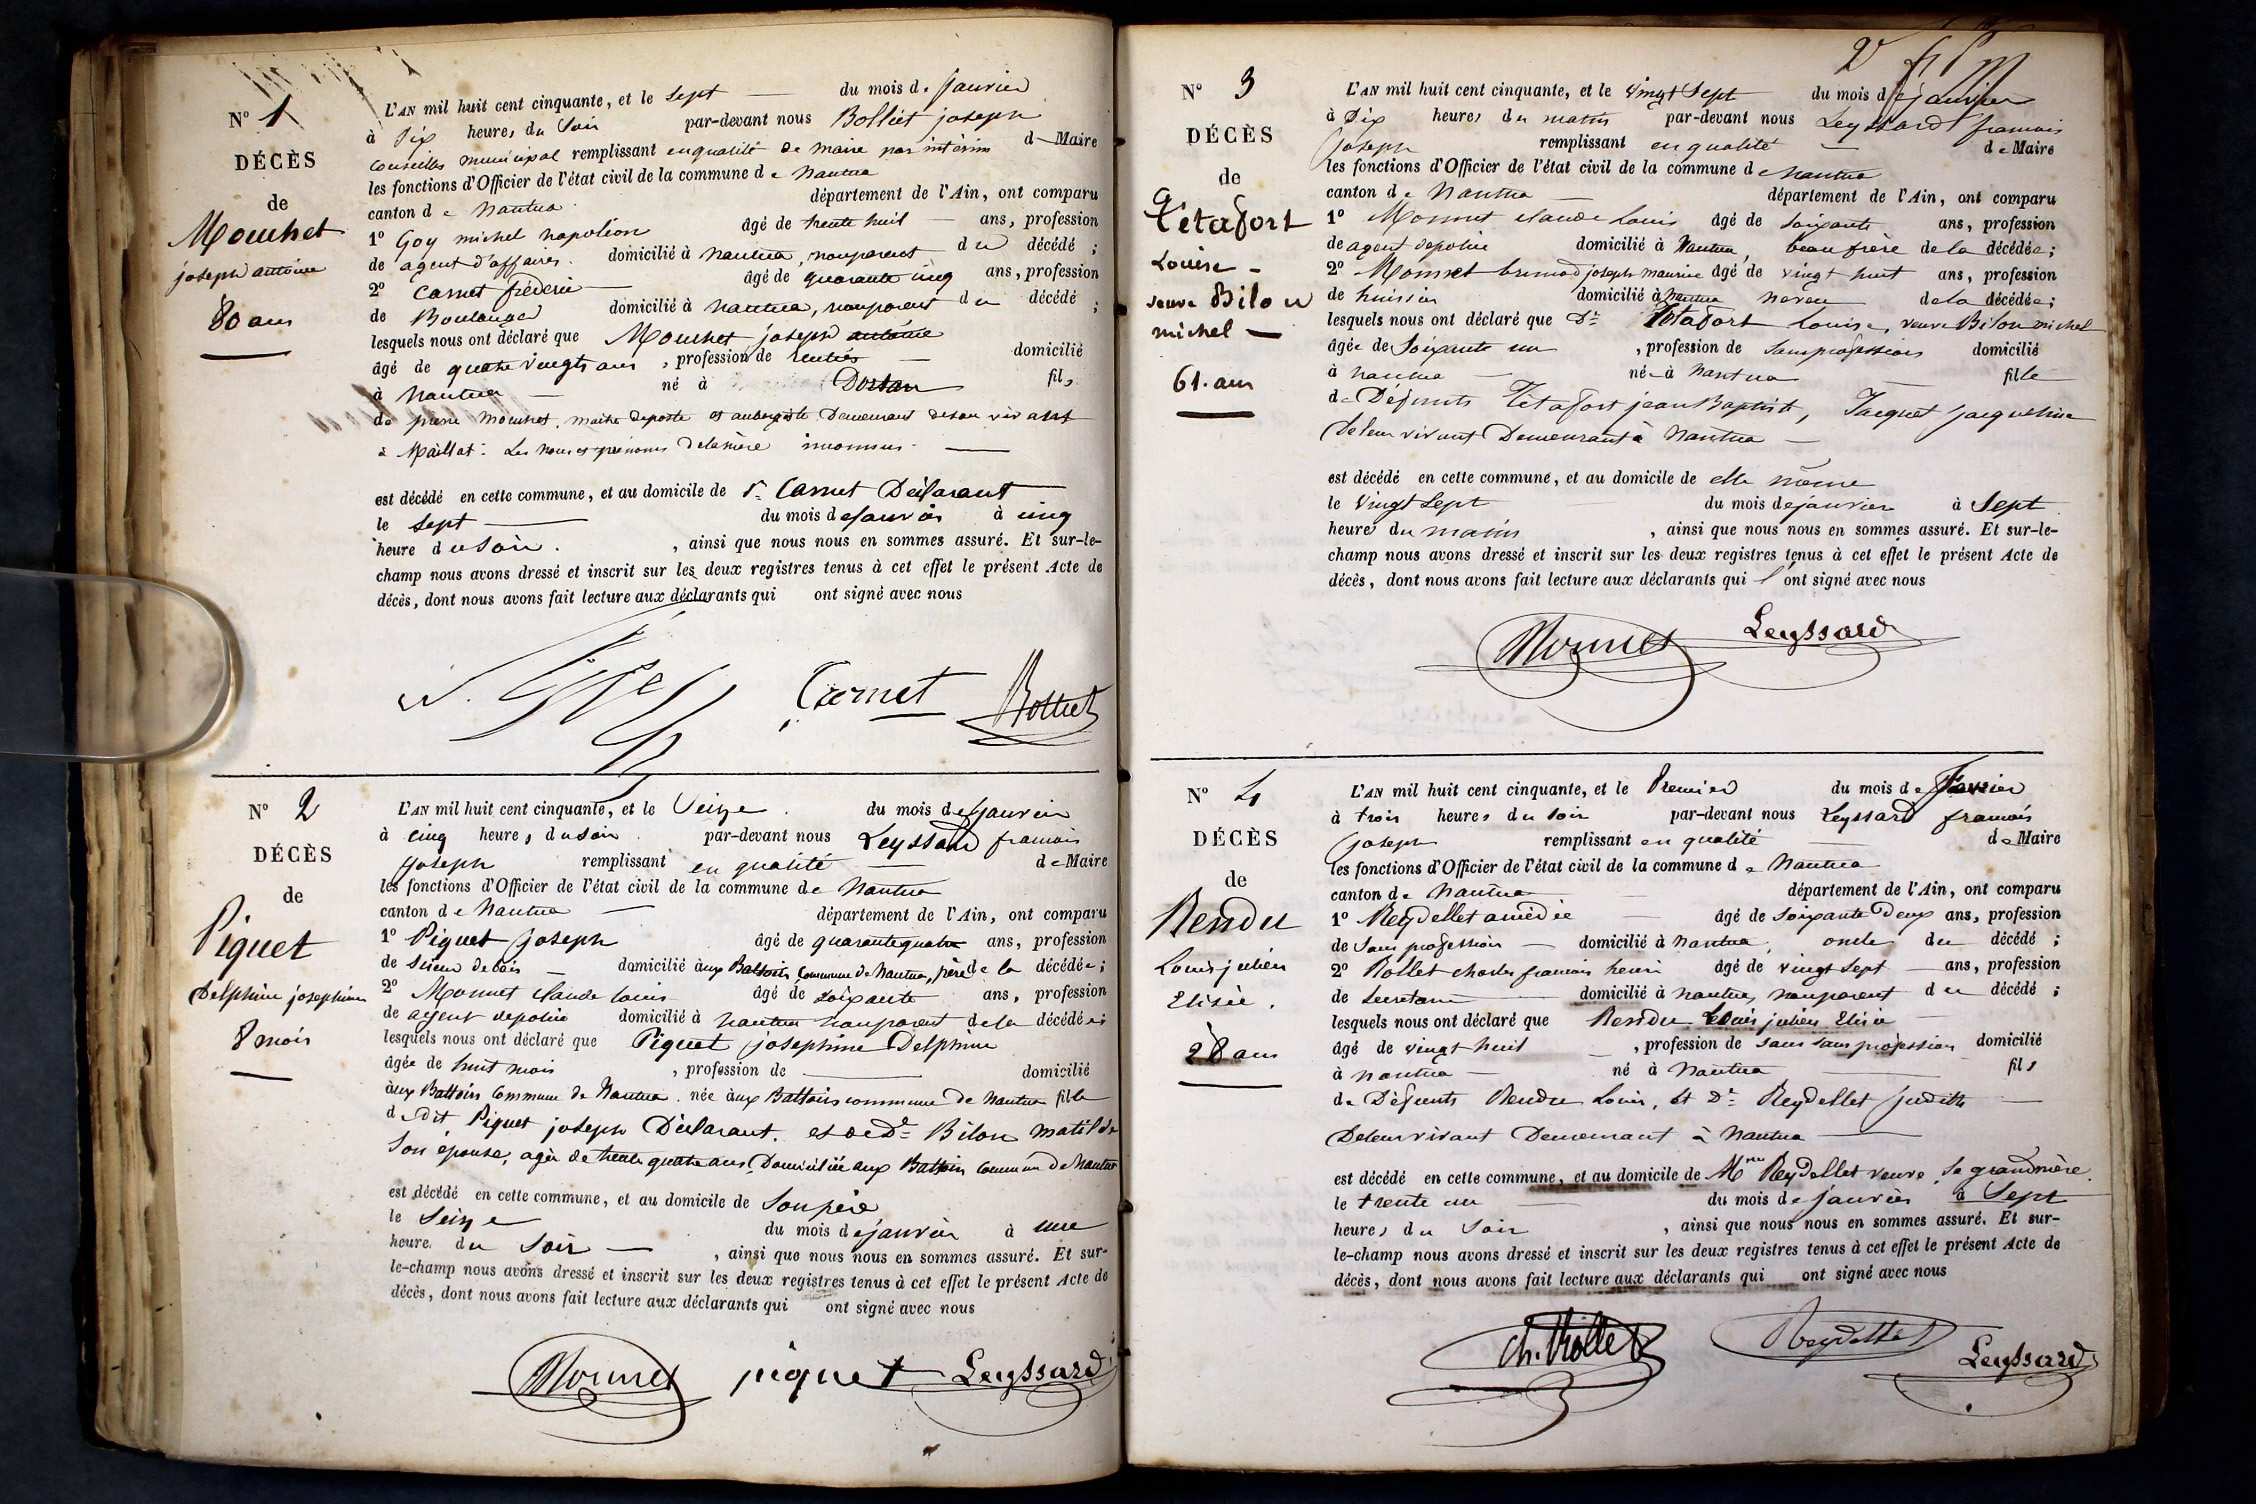 N° 1
DÉCÈS
de
Mouchet
joseph antoine
80 ans
L'AN mil huit cent cinquante, et le sept du mois de janvier
à six heures du soir par-devant nous Bolliet joseph
conseiller municipal remplissant en qualité de maire par intérim de Maire
les fonctions d'Officier de l'état civil de la commune de Nantua
canton de Nantua département de l'Ain, ont comparu
1° Goy michel napoléon âgé de trente huit ans, profession
de agent d'affaires. domicilié à nantua, non parent du décédé ;
2° Carnet frédéric âgé de quarante cinq ans, profession
de Boulanger domicilié à nantua, non parent du décédé ;
lesquels nous ont déclaré que Mouchet joseph antoine
âgé de quatre vingts ans, profession de rentier domicilié
à Nantua né à Dortan fils
de pierre Mouchet, maître de poste et aubergiste Demeurant de son vivant
à Maillat. Les noms et prénoms de la mère inconnus.
est décédé en cette commune, et au domicile de Sr Carnet Déclarant
le sept du mois de janvier à cinq
heure du soir. , ainsi que nous nous en sommes assuré. Et sur-le-
champ nous avons dressé et inscrit sur les deux registres tenus à cet effet le présent Acte de
décès, dont nous avons fait lecture aux déclarants qui ont signé avec nous
Carnet Bolliet
N° 2
DÉCÈS
de
Piquet
Delphine josephine
8 mois
L'AN mil huit cent cinquante, et le Seize du mois de janvier
à cinq heures du soir par-devant nous Leyssard francois
joseph remplissant en qualité de Maire
les fonctions d'Officier de l'état civil de la commune de Nantua
canton de Nantua département de l'Ain, ont comparu
1° Piquet joseph âgé de quarante quatre ans, profession
de Scieur de bois domicilié aux Battoirs, commune de Nantua, père de la décédée ;
2° Monnet claude louis âgé de soixante ans, profession
de agent de police domicilié à nantua non parent de la décédée ;
lesquels nous ont déclaré que Piquet joséphine Delphine
âgée de huit mois , profession de domicilié
aux Battoirs Commune de Nantua. née aux Battoirs commune de Nantua fille
de dit Piquet joseph Déclarant. et de De Bilon Matilde
son épouse, agée de trente quatre ans, Domiciliée aux Battoirs Commune de Nantua
est décédé en cette commune, et au domicile de Son père
le Seize du mois de janvier à une
heure du Soir , ainsi que nous nous en sommes assuré. Et sur-
le-champ nous avons dressé et inscrit sur les deux registres tenus à cet effet le présent Acte de
décès, dont nous avons fait lecture aux déclarants qui ont signé avec nous
Monnet piquet Leyssard
N° 3
DÉCÈS
de
Tétafort
Louise
veuve Bilon
michel
61. ans
L'AN mil huit cent cinquante, et le vingt Sept du mois de janvier
à Dix heures du matin par-devant nous Leyssard francois
joseph remplissant en qualité de Maire
les fonctions d'Officier de l'état civil de la commune de Nantua
canton de Nantua département de l'Ain, ont comparu
1° Monnet claude Louis âgé de soixante ans, profession
de agent de police domicilié à Nantua, beau frère de la décédée ;
2° Monnet brunod joseph maurice âgé de vingt huit ans, profession
de huissier domicilié à Nantua neveu de la décédée ;
lesquels nous ont déclaré que De Tétafort Louise, veuve Bilon michel
âgée de Soixante un , profession de Sans profession domicilié
à nantua née à Nantua fille
de Défunts Tétafort jean Baptiste, Jacquet jacqueline
De leur vivant Demeurant à Nantua
est décédé en cette commune, et au domicile de elle même
le vingt sept du mois de janvier à Sept
heures du matin , ainsi que nous nous en sommes assuré. Et sur-le-
champ nous avons dressé et inscrit sur les deux registres tenus à cet effet le présent Acte de
décès, dont nous avons fait lecture aux déclarants qui l'ont signé avec nous
Monnet Leyssard
N° 4
DÉCÈS
de
Rendu
Louis julien
Elisée.
28 ans
L'AN mil huit cent cinquante, et le Premier du mois de Février
à trois heures du soir par-devant nous Leyssard francois
joseph remplissant en qualité de Maire
les fonctions d'Officier de l'état civil de la commune de Nantua
canton de Nantua département de l'Ain, ont comparu
1° Reydellet amédée âgé de soixante Deux ans, profession
de Sans profession domicilié à Nantua, oncle du décédé ;
2° Rollet charles francois henri âgé de vingt sept ans, profession
de Secretaire domicilié à nantua, non parent du décédé ;
lesquels nous ont déclaré que Rendu Louis julien Elisée
âgé de vingt huit , profession de sans sans profession domicilié
à nantua né à Nantua fils
de Défunts Rendu Louis, et De Reydellet judith
De leur vivant Demeurant à Nantua
est décédé en cette commune, et au domicile de Mme Reydellet veuve, Sa grandmère.
le trente un du mois de janvier à Sept
heures du Soir , ainsi que nous nous en sommes assuré. Et sur-
le-champ nous avons dressé et inscrit sur les deux registres tenus à cet effet le présent Acte de
décès, dont nous avons fait lecture aux déclarants qui ont signé avec nous
Ch. Rollet Reydellet Leyssard